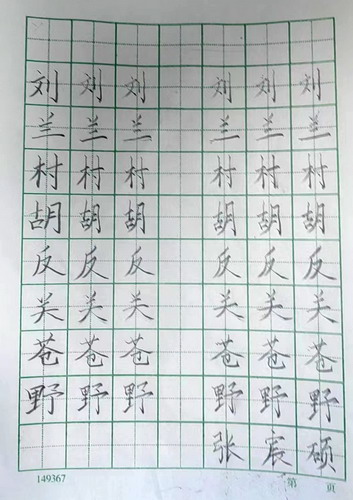 刘刘刘刘刘刘
兰兰兰兰兰兰
村村村村村村
胡胡胡胡胡胡
反反反反反反
关关关关关关
苍苍苍苍苍苍
野野野野野野
张宸硕
149367 第 页